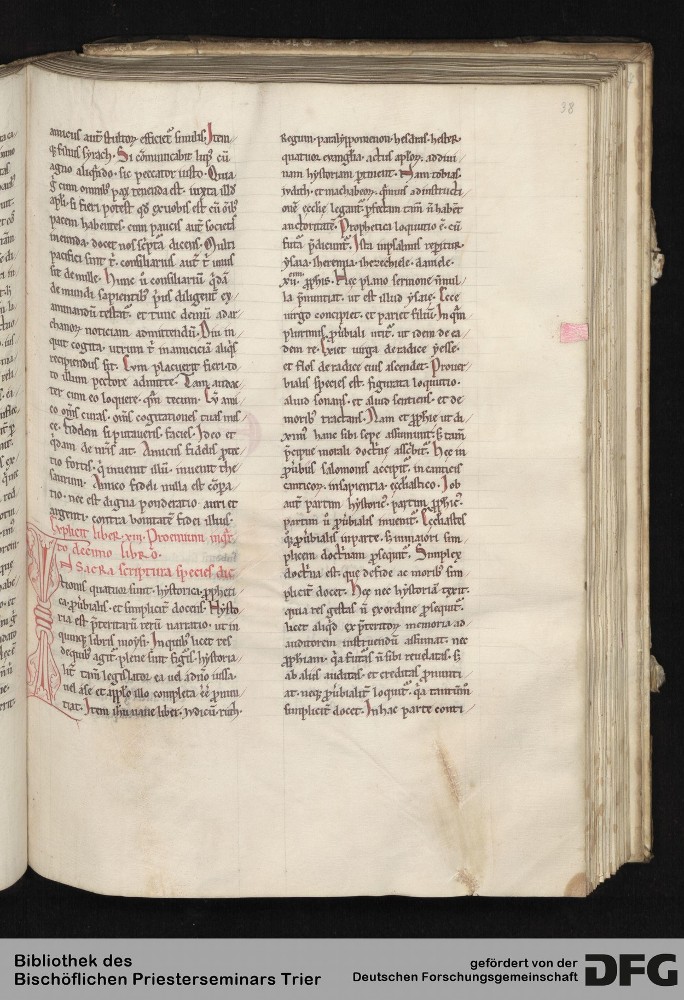 38
amicus aut̄ stultoꝝ efficiet̄ similis. Item
ẜ filius syrach. Si cōmunicabit lupꝰ cū
agno aliqn̄do. sic peccator iusto. Quia
cum omnibꝰ pax tenenda est. iuxta illd̄
apl̄i. si fieri potest qd̄ ex uobis est cū om̄ibꝰ
pacem habentes. cum paucis aut̄ societas
ineunda. docet nos scͥptͣa dicens. Multi
pacifici sint t̄. consiliarius aut̄ t̄ unus
sit de mille. Hunc ū consiliariū
de mundi sapientibꝰ pͥus diligent̄ ex
aminandū testat̄. et tunc demū ad ar
chanoꝝ noticiam admittendū. Diu in
quit cogita. utrum t̄ in amiciciā aliqͥs
recipiendus sit. Cum placuerit fieri. to
to illum pectore admitte. Tam audac
ter cum eo loquere. qͣm tecum. Cū ami
co om̄s curas. om̄s cogitationes tuas mis
ce. fidelem si putaueris. facies. Ideo et
qͥdam de nr̄is ait. Amicus fidelis ꝓtec
tio fortis. qͥ inuenit illū. inuenit the
saurum. Amico fideli nulla est cōpa
tio. nec est digna ponderatio auri et
argenti contra bonitatē fidei illius.
Explicit liber xiii. Proemium in qͣr
to decimo libro.
Sacra scriptura species dic
tionis quatuor sunt. hystorica. ꝓpheti
ca. ꝓũbialis. et simplicit̄ docens. Hysto
ria est pͥteritarū rerū narratio. ut in
quinqꝫ libris moysi. In quibꝰ licet res
de quibꝰ agit̄. plene sint figͥs. hystoria
lit̄ tam̄ legislator ea uel a dn̄o iussa.
uel a se et appl̄o illo completa ēē ꝓnun
tiat. Item ihu naue liber. iudicū. ruth.
Regum. paralypomenon. hesdras. hester.
quatuor euuangl̄ia. actus apl̄oꝝ. ad diui
nam hystoriam ꝑtinent. Nam tobias.
iudith. et machabeoꝝ. qͣmuis ad instructi
onē eccl̄ie legant̄. ꝑfectam tam̄ n̄ habent
auctoritatē. Prophetica loquutio ē. cū
futͣa p̄dicunt̄. Ista in psalmis repitur
ysaia. iheremia. ihezechiele. daniele.
xii. ꝓph̄is. Hec plano sermone n̄nul
la ꝓnuntiat. ut est illud ysaie. Ecce
uirgo concipiet. et pariet filiū. In qͥm
plurimis. ꝓũbiali utit̄. ut idem de ea
dem re. Exiet uirga de radice yesse.
et flos de radice eius ascendet. Prouer
bialis species est. figurata loquutio.
aliud sonans. et aliud sentiens. et de
moribꝰ tractans. Nam et ꝓph̄ie ut di
ximꝰ hanc sibi sepe assumunt. ẜ tam̄
p̄cipue morali doctͥne asscͥbit̄. Hec in
ꝓũbiis salomonis accipit̄. in canticis
canticoꝝ. in sapientia. eccl̄iastico. Iob
aut̄ partim hystorice. partim ꝓph̄ice.
partim ū ꝓũbialis inuenit̄. Eccl̄iastes
qͦqꝫ ꝓũbialis in parte. ẜ in maiori sim
plicem doctͥnam ꝓsequit̄. Simplex
doctͥna est. que de fide ac moribꝰ sim
plicit̄ docet. Hec nec hystoriā texit.
quia res gestas n̄ ex ordine ꝓsequit̄.
licet aliqd̄ ex p̄teritoꝝ memoria ad
auditorem instruendū assumat. nec
ꝓph̄iam. qͥa futͣa n̄ sibi reuelata. ẜ
ab aliis audita. et credita ꝓnunti
at. neqꝫ ꝓũbialit̄ loquit̄. qͥa tantūm
simplicit̄ docet. In hac parte conti
Bibliothek des
Bischöflichen Priesterseminars Trier
gefördert von der
Deutschen Forschungsgemeinschaft
DFG